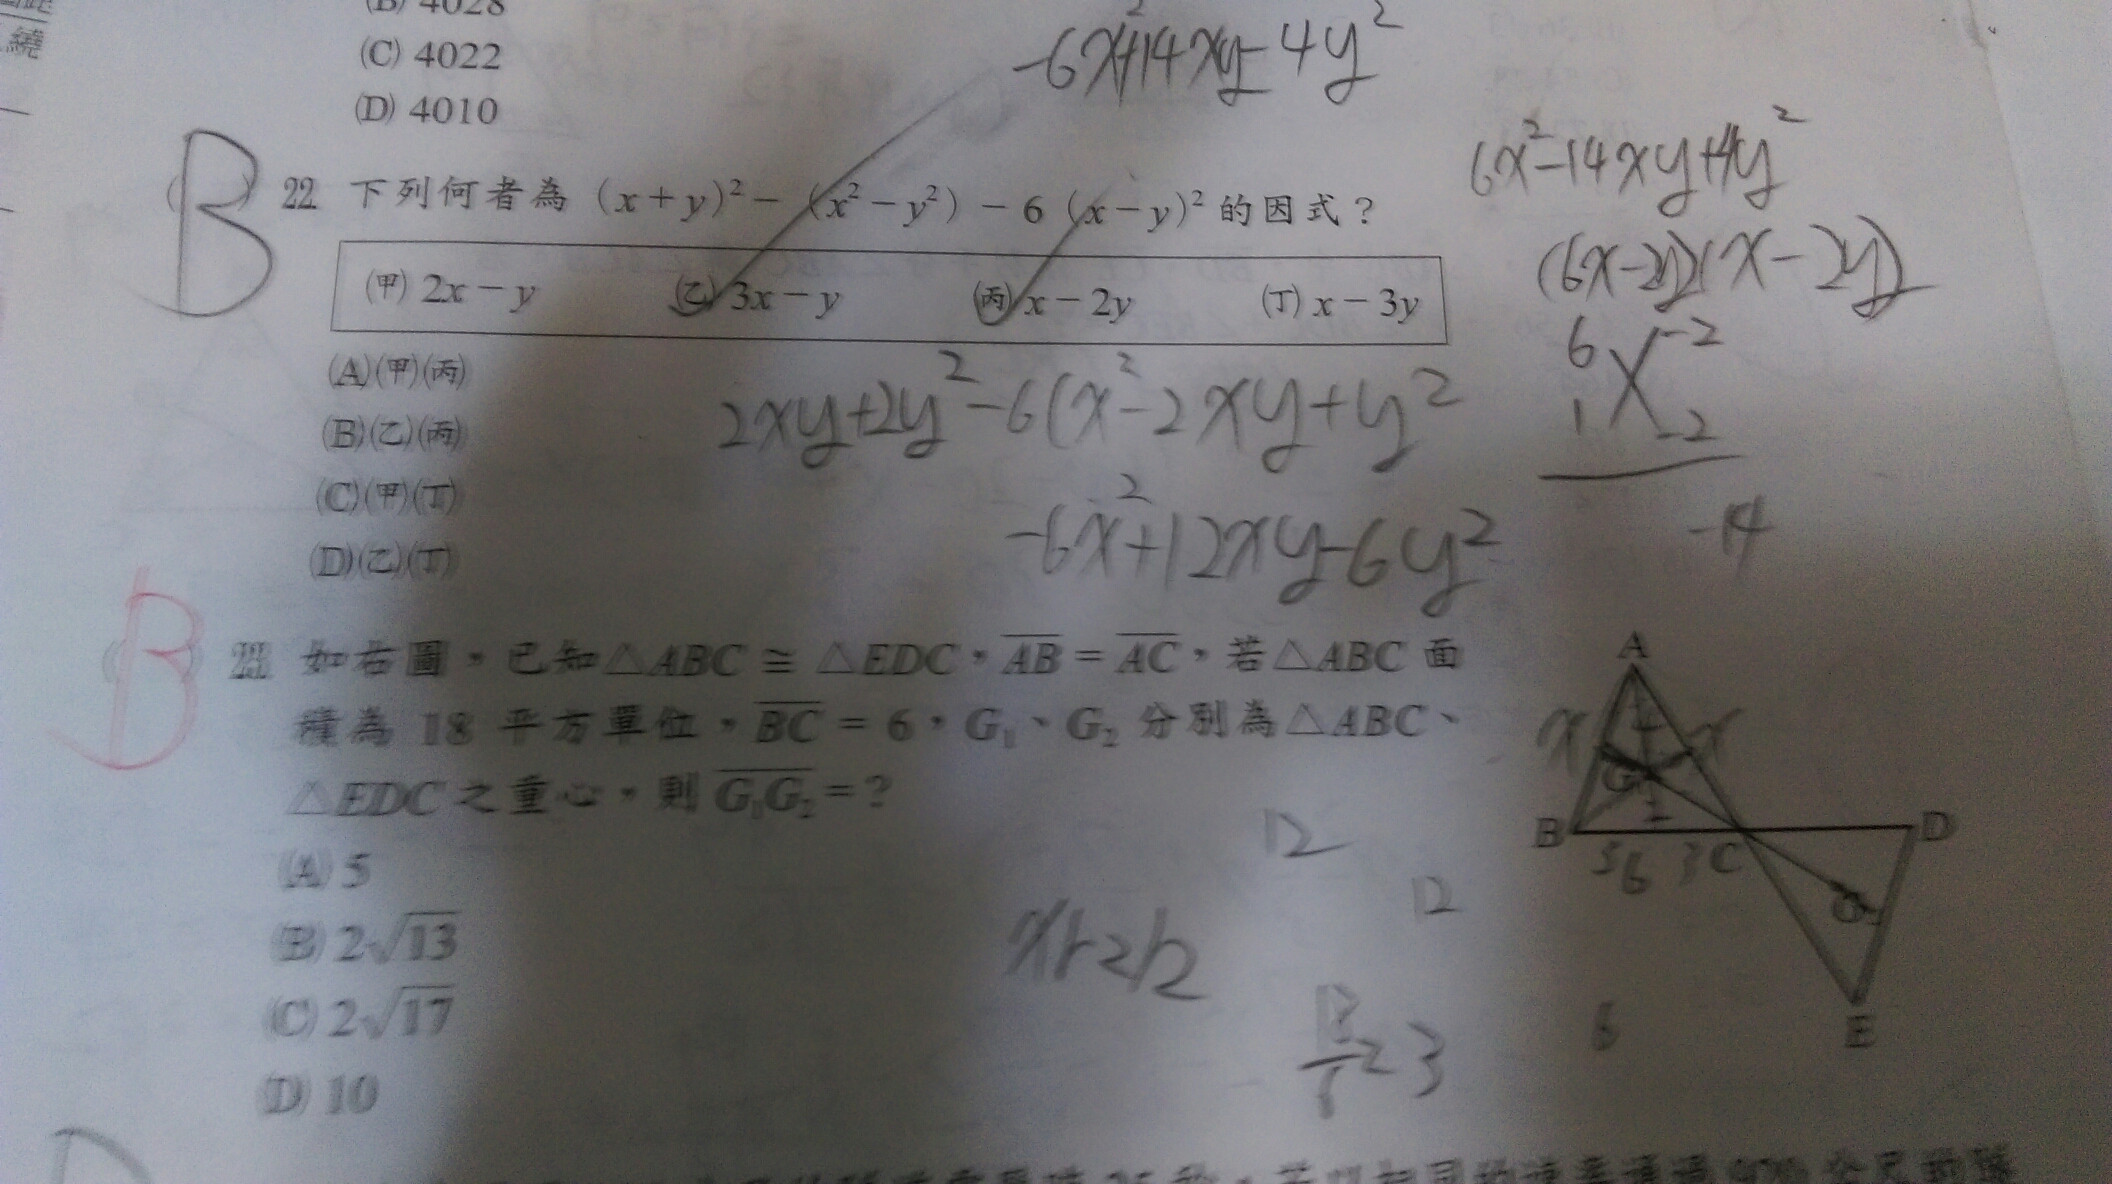 (B) 4028
繞
(C) 4022
(D) 4010
-6x²+14xy-4y²
6x²-14xy+4y²
(6x-2y)(x-2y)
6 -2
1 -2
-14
B
22 下列何者為 (x+y)²-(x²-y²)-6(x-y)² 的因式?
(甲) 2x-y (乙) 3x-y (丙) x-2y (丁) x-3y
(A)(甲)(丙)
(B)(乙)(丙)
(C)(甲)(丁)
(D)(乙)(丁)
2xy+2y²-6(x²-2xy+y²
-6x²+12xy-6y²
B
23 如右圖,已知△ABC ≅ △EDC,AB = AC,若△ABC 面
積為 18 平方單位,BC = 6,G₁、G₂ 分別為△ABC、
△EDC 之重心,則 G₁G₂ = ?
(A) 5
(B) 2√13
(C) 2√17
(D) 10
A
x x
G
B C D
6 3
E
12
12
6